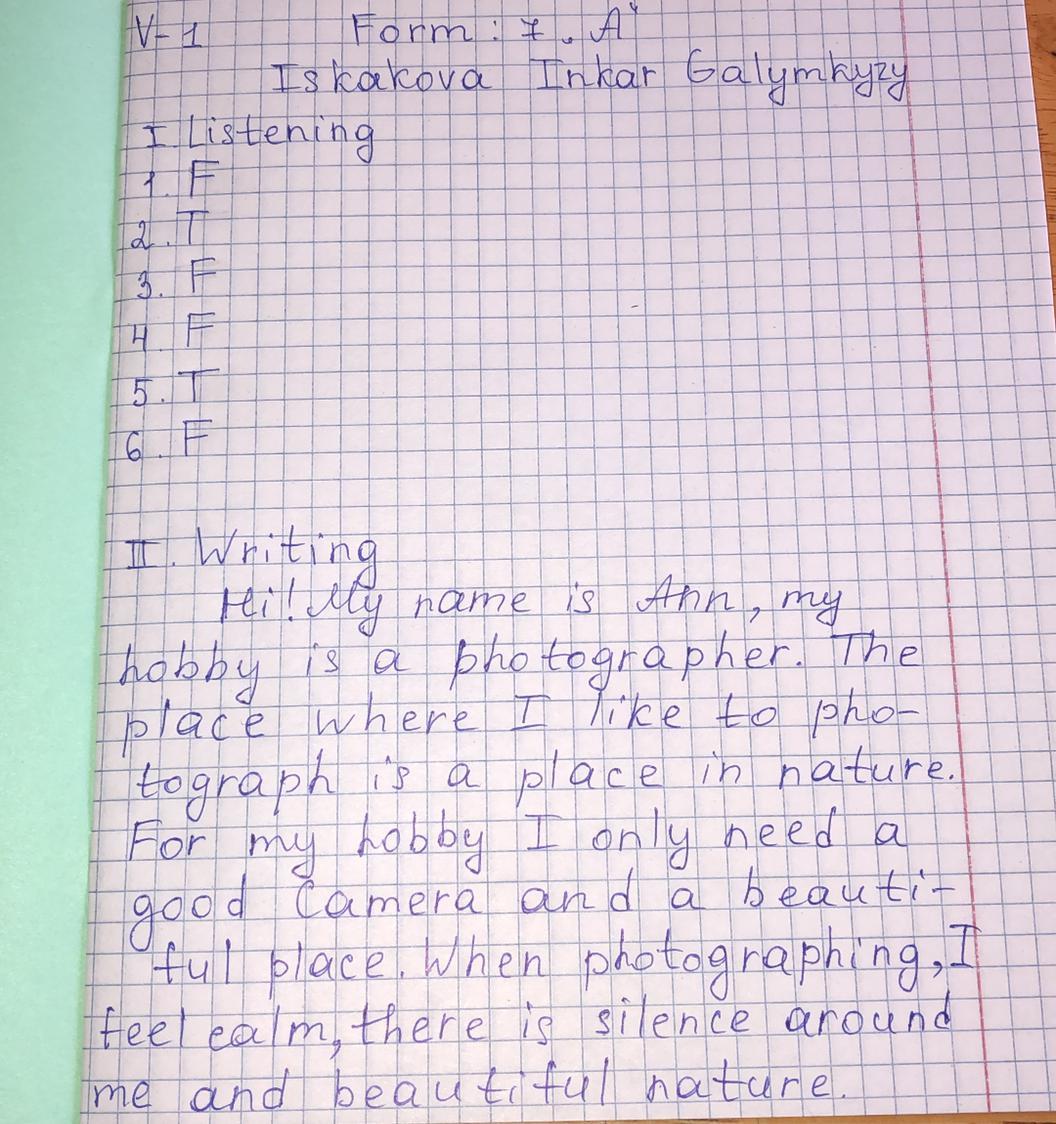 V-1 Form: 7. "A"
Iskakova Inkar Galymkyzy
I Listening
1. F
2. T
3. F
4. F
5. T
6. F
II. Writing
Hi! My name is Ann, my
hobby is a photographer. The
place where I like to pho-
tograph is a place in nature.
For my hobby I only need a
good Camera and a beauti-
ful place. When photographing, I
feel calm, there is silence around
me and beautiful nature.